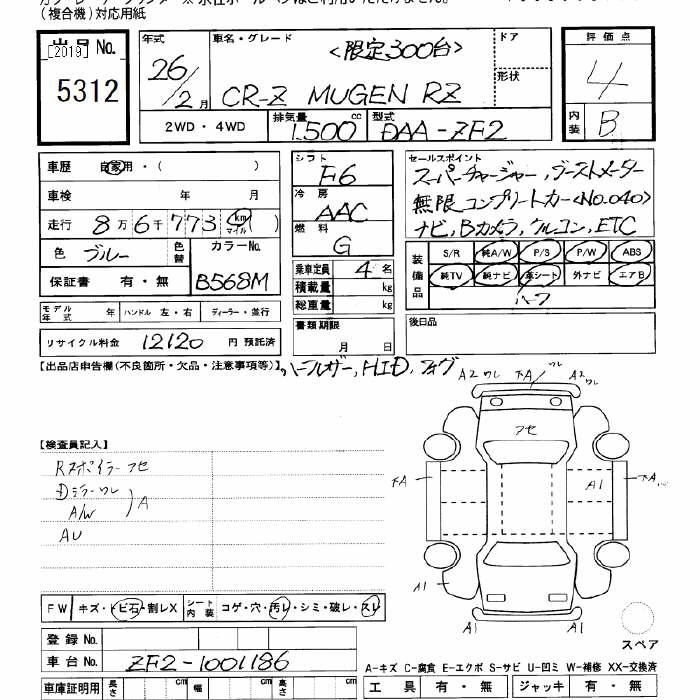 (複合機)対応用紙
出品No.
[2019]
5312
年式
26/2月
車名・グレード
<限定300台>
CR-Z MUGEN RZ
ドア
形状
評価点
4
内装
B
2WD・4WD
排気量
1.500
cc
型式
DAA-ZF2
車歴
自家用・( )
車検
年 月
走行
8万6千773
km
マイル
( )
色
ブルー
色替
カラーNo.
B568M
保証書 有・無
シフト
F6
冷房
AAC
燃料
G
乗車定員 4 名
積載量 kg
総重量 kg
セールスポイント
スーパーチャージャー, ブーストメーター
無限コンプリートカー<No.040>
ナビ, Bカメラ, クルコン, ETC
装備品
S/R 純A/W P/S P/W ABS
純TV 純ナビ 革シート 外ナビ エアB
ハーフ
モデル年式 年 ハンドル 左・右 ディーラー・並行
書類期限
月 日
後日品
リサイクル料金 12120 円 預託済
【出品店申告欄(不良箇所・欠品・注意事項等)】
ハーフレザー, HID, フォグ
A2ワレ
下A
ワレ
A2ワレ
アセ
下A
A1
下A
A1
A1
A1
A1
【検査員記入】
Rスポイラーアセ
Dミラーワレ
A/W
A
AU
FW キズ・トビ石・割レX シート内装 コゲ・穴・汚レ・シミ・破レ・スレ
登録No.
車台No. ZF2-1001186
車庫証明用 長さ cm 幅 cm 高さ cm
スペア
A-キズ C-腐食 E-エクボ S-サビ U-凹ミ W-補修 XX-交換済
工具 有・無 ジャッキ 有・無